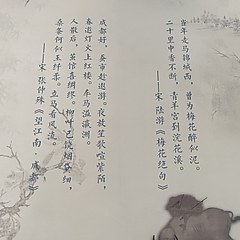 当年走马锦城西，曾为梅花醉似泥。
二十里中香不断，青羊宫到浣花溪。
——宋 陆游《梅花绝句》
成都好，蚕市趁遨游。夜放笙歌喧紫陌，
春邀灯火上红楼。车马溢瀛洲。
人散后，茧馆喜绸缪。柳叶已饶烟黛细，
桑条何似玉纤柔。立马看风流。
——宋 张仲殊《望江南 成都》